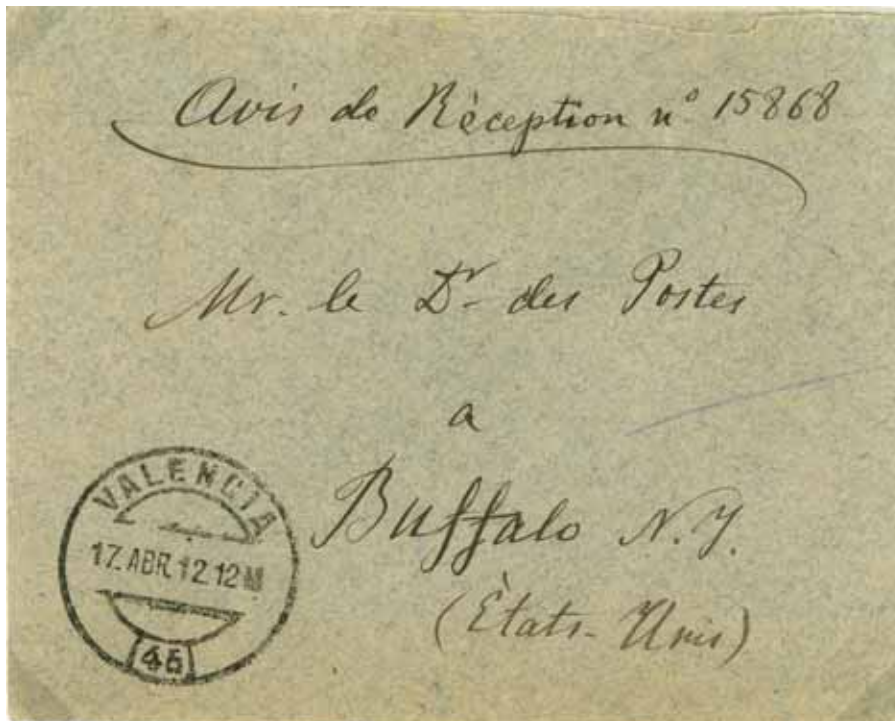 Avis de Rèception nº 15868
Mr. le Dr. des Postes
a
Buffalo N.Y.
(Ètats-Unis)
VALENCIA
17.ABR.12.12M
46